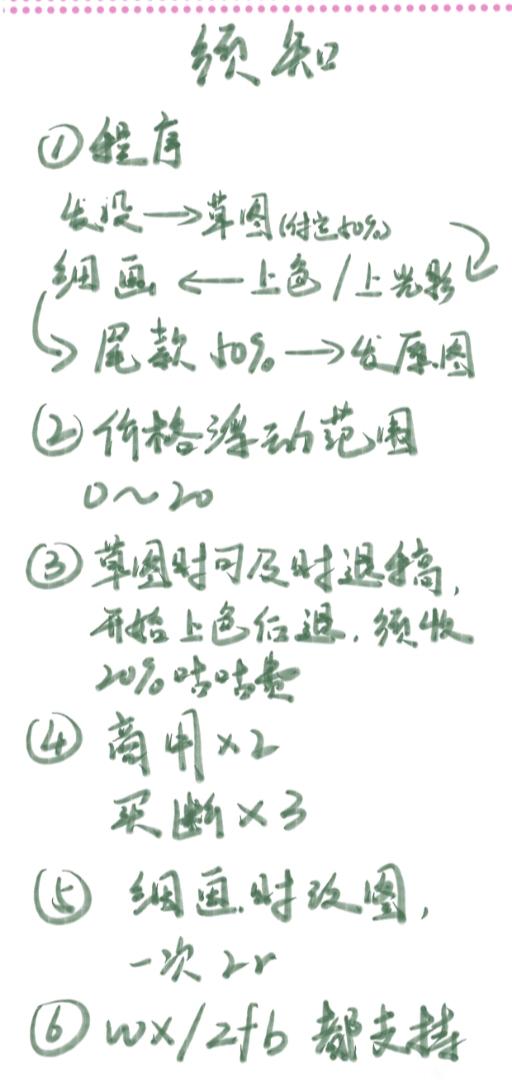 须知
①程序
发设→草图(付定50%)
细画←上色/上光影
尾款50%→发原图
②价格浮动范围
0~20
③草图时可及时退稿,
开始上色后退,须收
20%咕咕费
④商用×2
买断×3
⑤细画时改图,
一次2r
⑥wx/zfb都支持